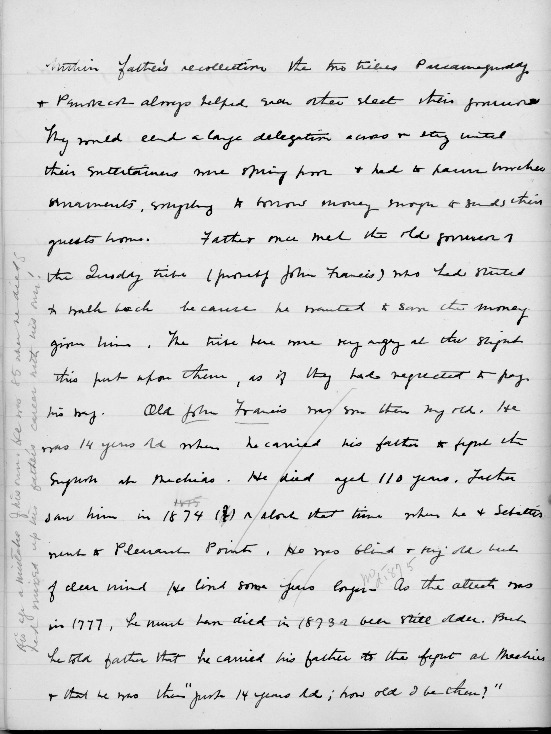 Within father's recollection the two tribes Passamaquoddy
& Penobscot always helped each other elect their governors
They would send a large delegation across & stay until
their entertainers were spring poor & had to pawn brooches
ornaments, everything to borrow money enough to send their
guests home. Father once met the old governor of
the Quoddy tribe (probably John Francis) who had started
to walk back because he wanted to save the money
given him. The tribe here were very angry at the slight
this put upon them, as if they had neglected to pay
his way. Old John Francis was even then very old. He
was 14 years old when he carried his father to fight the
English at Machias. He died aged 110 years. Father
saw him in 1874 (?) or about that time when he &
went to Pleasant Point. He was blind & very old but
of clear mind He lived some years longer. As the attack was
in 1777, he must have died in 1873 or been still older. But
he told father that he carried his father to the fight at Machias
& that he was then "just 14 years old; how old I be then?"
His age a mistake of his own. He was 85 when he died;
he'd mixed up his father's career with his own!